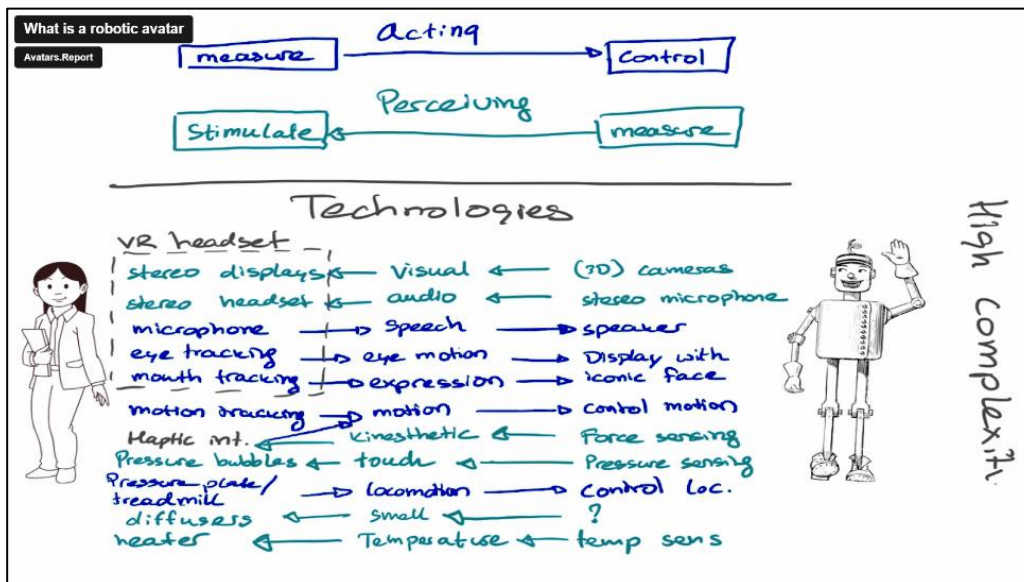 What is a robotic avatar
Avatars.Report
Acting
measure control
Perceiving
Stimulate measure
Technologies
VR headset
stereo displays visual (3D) cameras
stereo headset audio stereo microphone
microphone speech speaker
eye tracking eye motion Display with
mouth tracking expression iconic face
motion tracking motion control motion
Haptic int. kinesthetic Force sensing
Pressure bubbles touch Pressure sensing
Pressure plate/
treadmill locomotion control loc.
diffusers smell ?
heater Temperature temp sens
High complexity.